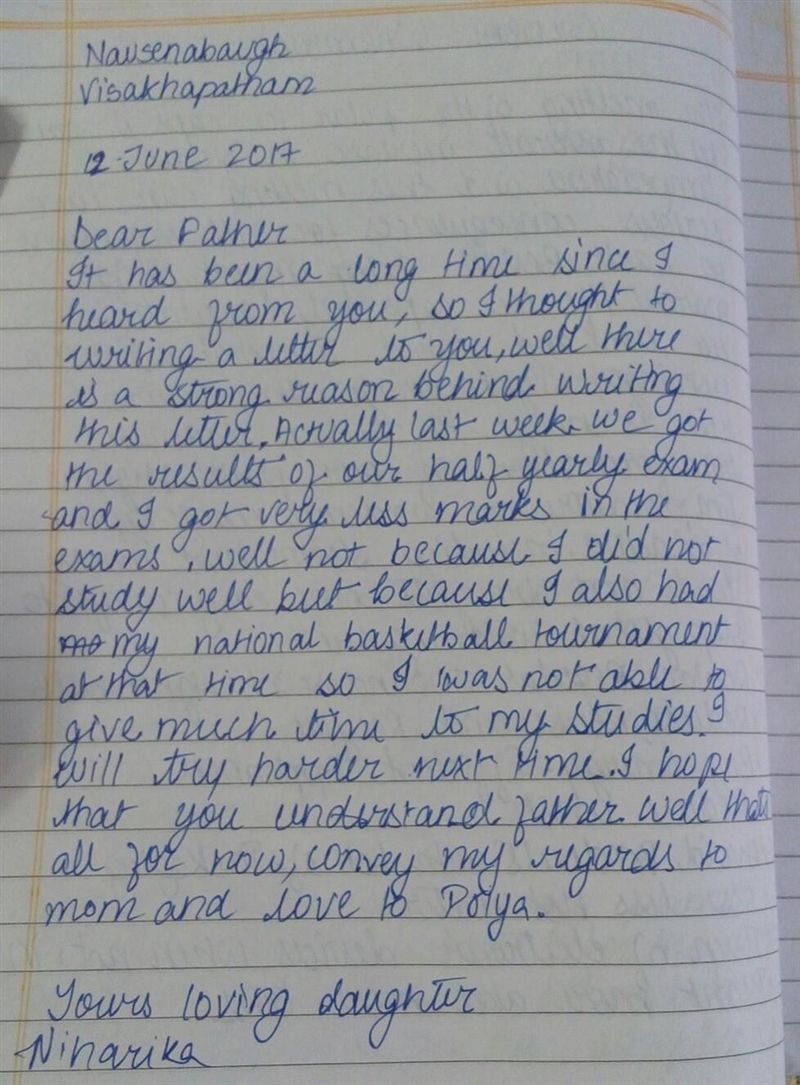 Nausenabaugh
Visakhapatnam
12 June 2017
Dear Father
It has been a long time since I
heard from you, so I thought to
writing a letter to you, well there
is a strong reason behind writing
this letter. Actually last week we got
the results of our half yearly exam
and I got very less marks in the
exams, well not because I did not
study well but because I also had
my national basketball tournament
at that time so I was not able to
give much time to my studies. I
will try harder next time. I hope
that you understand father well thats
all for now, convey my regards to
mom and love to Poiya.
Yours loving daughter
Niharika